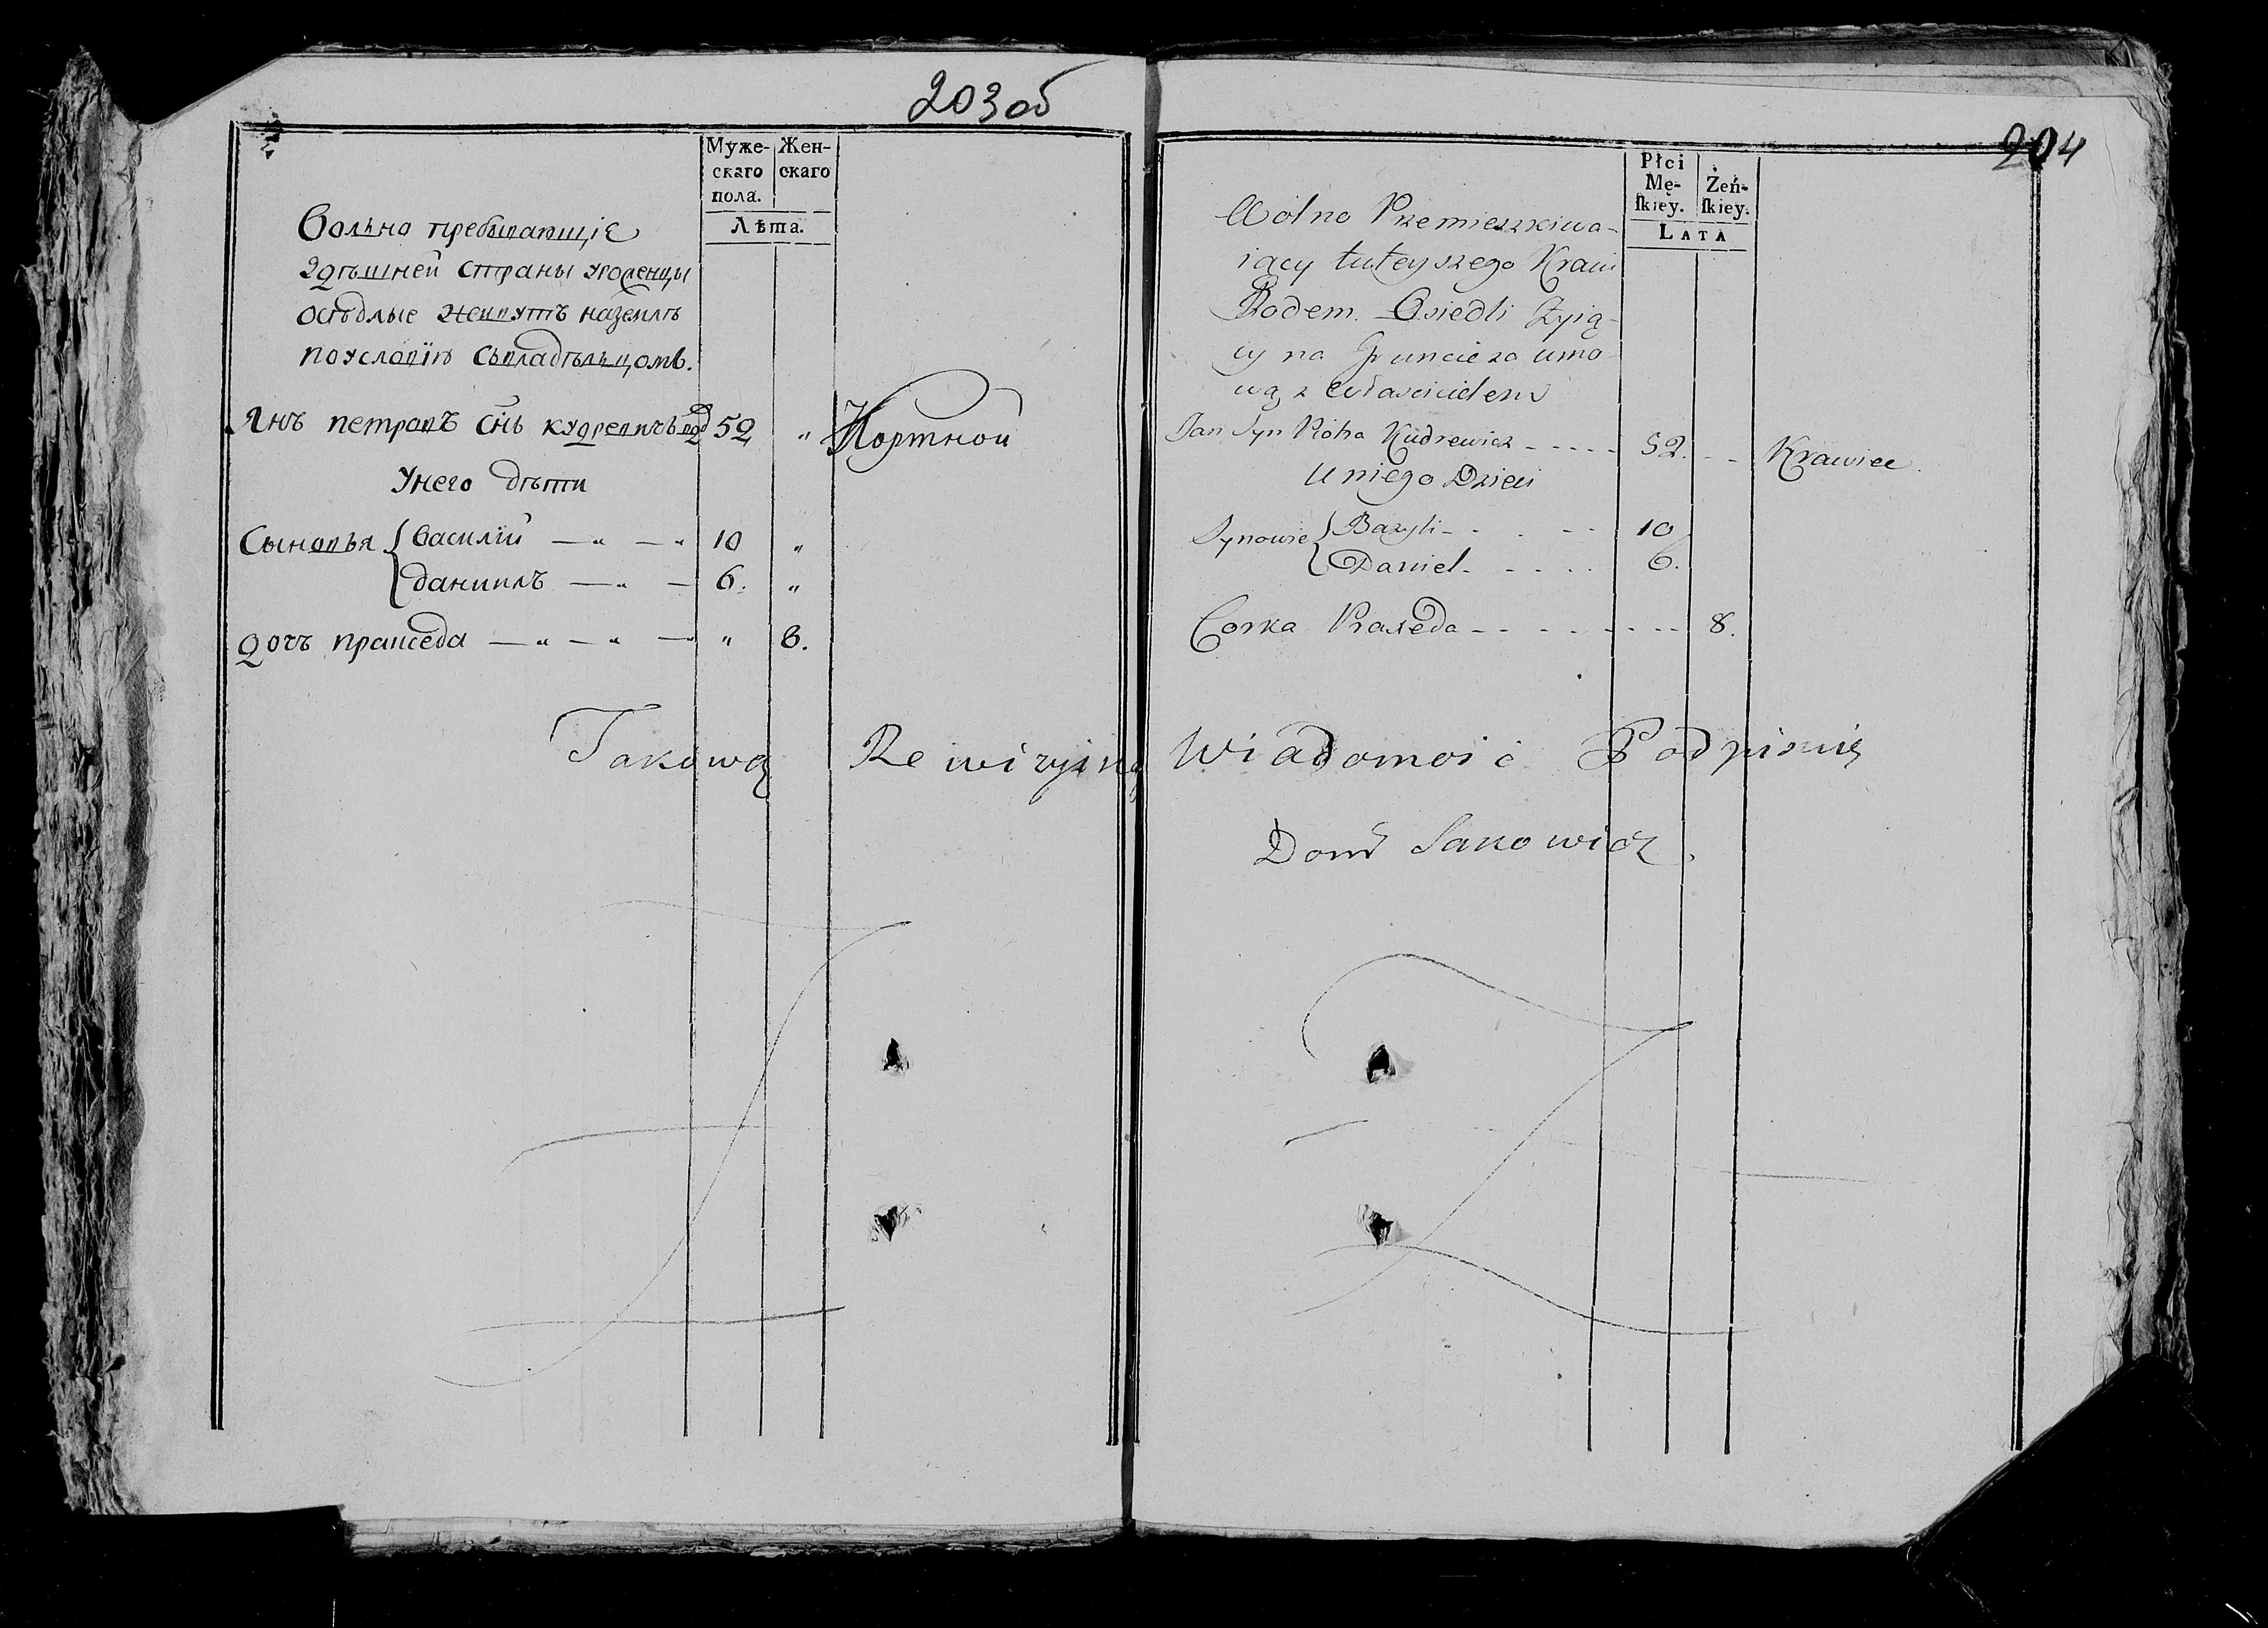 203 об
Муже- Жен-
скаго скаго
пола.
Лѣта.
Вольно пребывающіе
здѣшней страны уроженцы
осѣдлые живутъ на землѣ
по условію съ владѣльцомъ.
Янъ петровъ снъ кудревичъ 52 " Портной
У него дѣти
Сыновья { Василій — " — " 10 "
даниилъ — " — 6. "
дочь пракседа — " — " — " 8.
204
Płci
Mę- Żeń-
ſkiey. ſkiey.
LATA
Wolno Przemieszkiwa-
iący tuteyszego Kraiu
Rodem. Osiedli Żyią-
cy na Gruncie za umo-
wą z Właścicielem
Jan Syn Piotra Kudrewicz - - - - - 52. - - Krawiec.
U niego Dzieci
Synowie { Bazyli - - . - - 10
Daniel. - - . . . 6.
Corka Praxeda - - - - - - - - - 8.
Takową Rewizyiną Wiadomość Podpisuię
Dom Sakowicz.